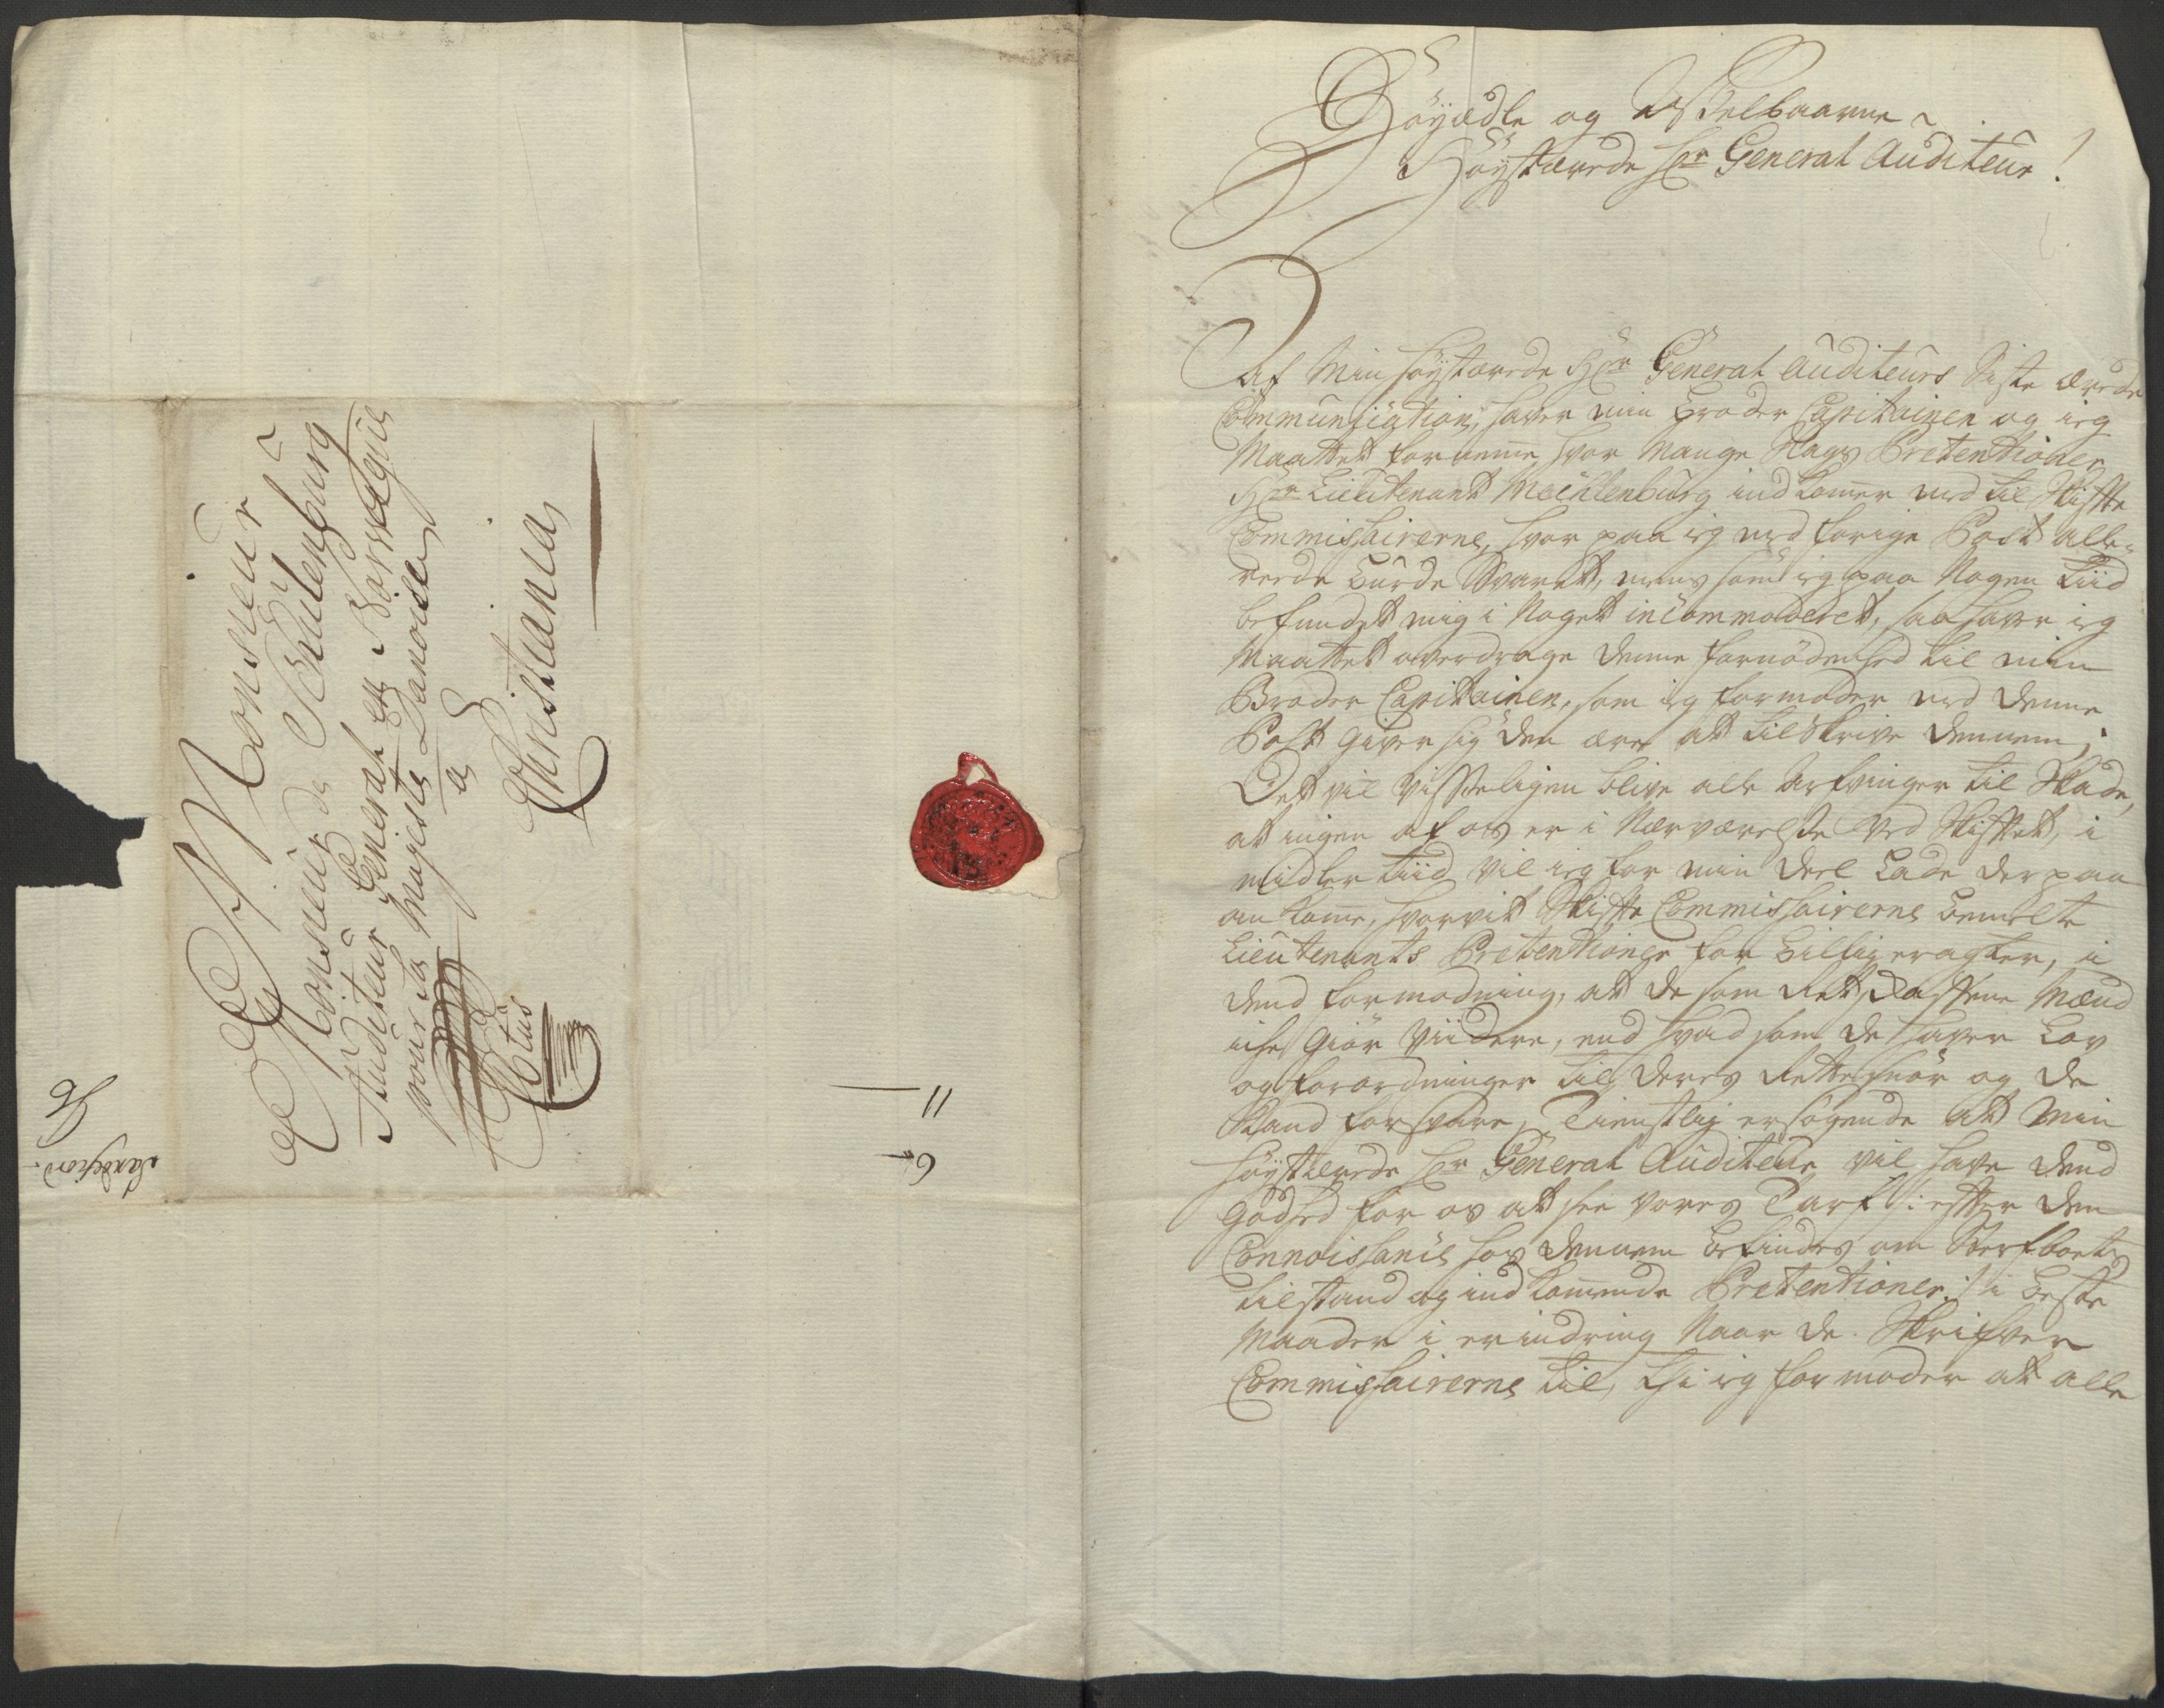 A Monsieur
Monsieur de Schulenburg
Auditeur General en Norwegue
pour Sa Majesté Danoise
à
Christiania
Cito
Sandefiord
11
6
Höyædle og Velbaarne
Höystærede Hr General Auditeur!
Af Min höystærede Hr General Auditeurs Siste ærede
Communication, haver min Broder Capitainen og ieg
Maattet fornemme hvor Mange Slags Pretentioner
Hr Lieutenant Mechlenburg indkommer med til Skifte
Commissairerne, hvor paa ieg med forige Post alle-
rede burde Svaret, mens som ieg paa Nogen tiid
befundet mig i Noget incommoderet, saa haver ieg
Maattet overdrage denne fornödenhed til min
Broder Capitainen, som ieg formoder med denne
Post giver sig den ære at tilskrive dennem;
Det vil Visseligen blive alle Arfvinger til Skade,
at ingen af os er i Nærværelse ved Skiftet, i
midlertiid vil ieg for min deel lade der paa
ankomme, hvorvit Skifte Commissairerne bemelte
Lieutenants Pretentioner for billig eragter, i
dend formodning, at de som Retsdaffene Mænd
iche giör Viidere, end hvad som de haver Lov
og forordninger til deres Rettesnor og de
kand forsvare, Tienstlig ersögende at Min
höystærede Hr General Auditeur vil have dend
Godhed for os at see vores Tarf /: efter den
Connoissance hos dennem befindes om Sterfboets
tilstand og indkommende Pretentioner :/ i beste
Maader i erindring Naar de Skrifver
Commissairerne til, thi ieg formoder at alle